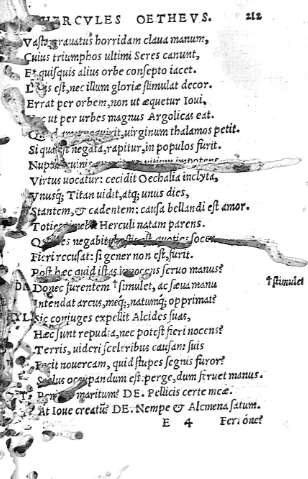 HERCVLES OETHEVS. 212
Vasto grauatus horridam claua manum,
Cuius triumphos ultimi Seres canunt,
Et quisquis alius orbe consepto iacet.
est, nec illum gloriæ stimulat decor.
Errat per orbem, non ut æquetur Ioui,
ut per urbes magnus Argolicas eat.
virginum thalamos petit.
Si qua est negata, rapitur, in populos furit.
Nuptas
Virtus uocatur: cecidit Oechalia inclyta,
Vnusq́; Titan uidit, atq; unus dies,
Stantem, & cadentem: causa bellandi est amor.
Toties Herculi natam parens.
negabit,
Fieri recusat: si gener non est, furit.
Post hæc quid istas innocens seruo manus?
DE. Donec furentem †simulet, ac sæua manu †stimulet
Intendat arcus, meq́;, natumq́; opprimat?
Sic coniuges expellit Alcides suas,
Hæc sunt repudia, nec potest fieri nocens?
Terris, uideri sceleribus causam suis
Fecit nouercam, quid stupes segnis furor?
Scelus occupandum est: perge, dum feruet manus.
maritum? DE. Pellicis certe meæ.
At Ioue creatū? DE. Nempe & Alcmena satum.
E 4 Ferróne?